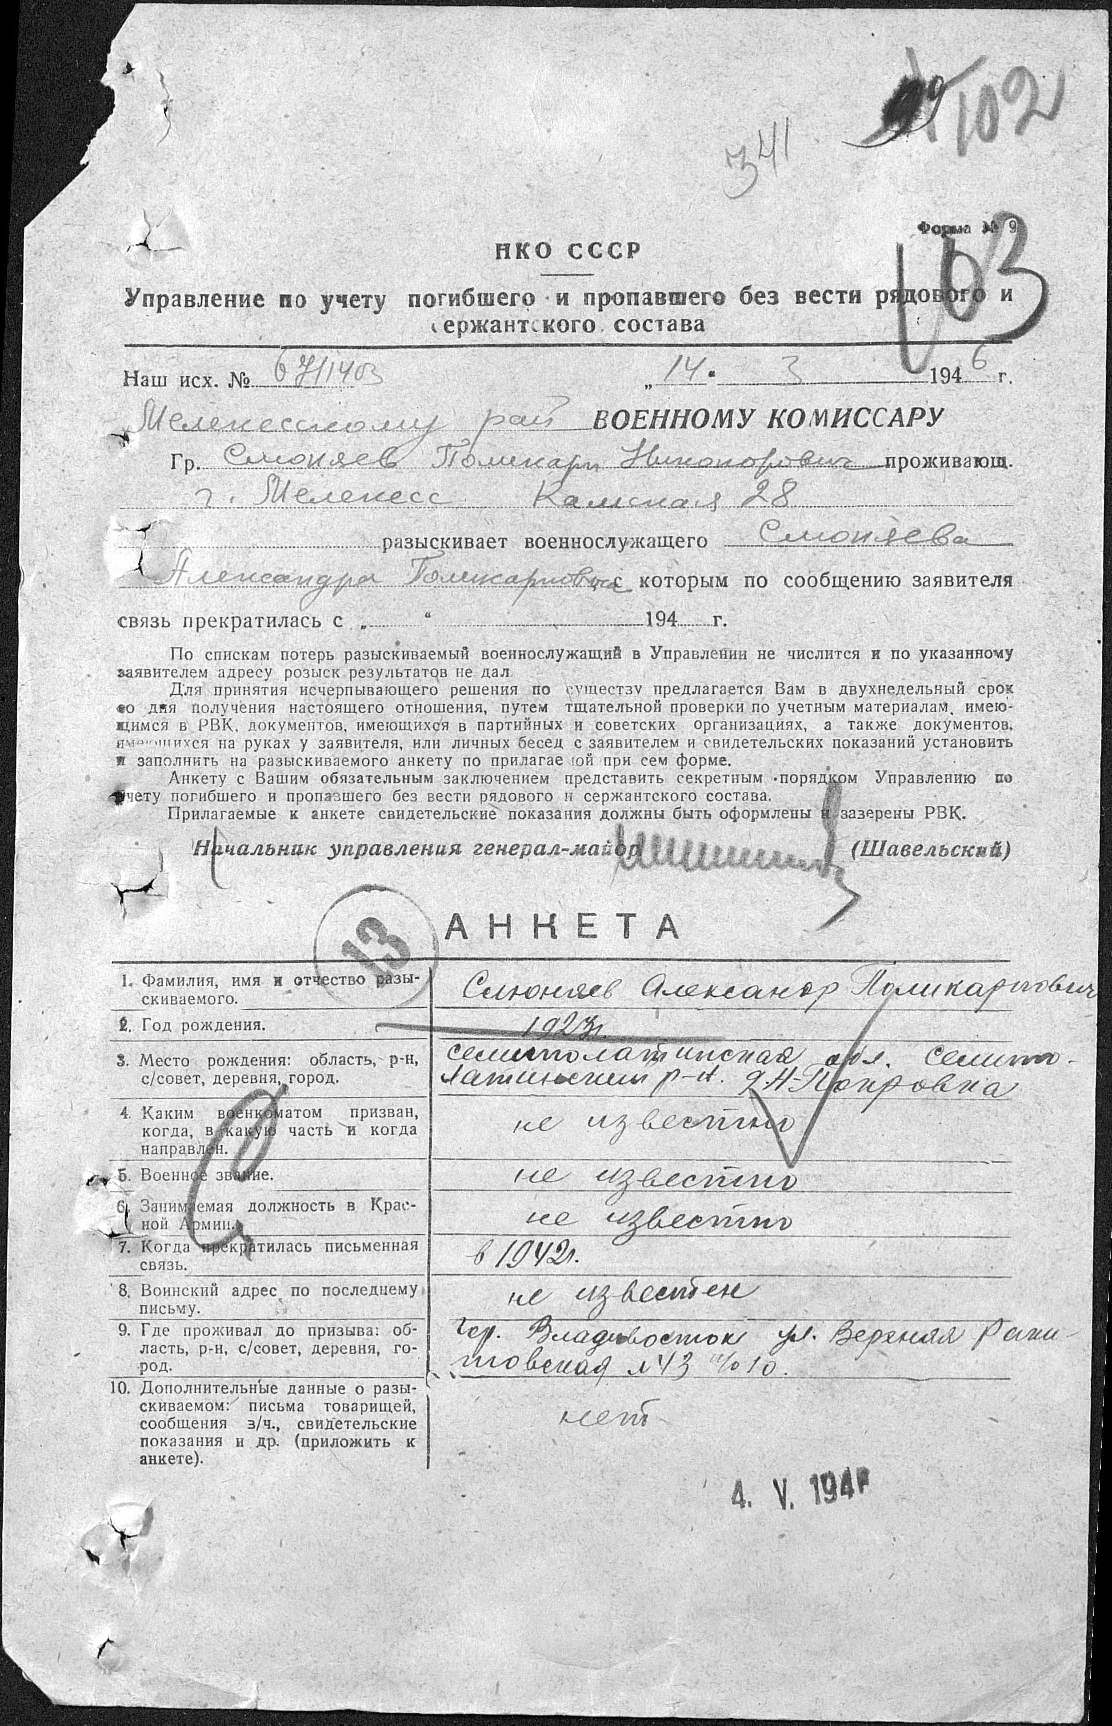 102
341
Форма № 9
103
НКО СССР
Управление по учету погибшего и пропавшего без вести рядового и
сержантского состава
Наш исх. № 671403 „14" 3 1946 г.
Мелекесскому рай ВОЕННОМУ КОМИССАРУ
Гр. Смоняев Поликарп Никонорович проживающ.
г. Мелекесс Камская 28
разыскивает военнослужащего Смоняева
Александра Поликарповича с которым по сообщению заявителя
связь прекратилась с „ " 194 г.
По спискам потерь разыскиваемый военнослужащий в Управлении не числится и по указанному
заявителем адресу розыск результатов не дал
Для принятия исчерпывающего решения по существу предлагается Вам в двухнедельный срок
со дня получения настоящего отношения, путем тщательной проверки по учетным материалам, имею-
щимся в РВК, документов, имеющихся в партийных и советских организациях, а также документов,
имеющихся на руках у заявителя, или личных бесед с заявителем и свидетельских показаний установить
и заполнить на разыскиваемого анкету по прилагаемой при сем форме.
Анкету с Вашим обязательным заключением представить секретным порядком Управлению по
учету погибшего и пропавшего без вести рядового и сержантского состава.
Прилагаемые к анкете свидетельские показания должны быть оформлены и заверены РВК.
Начальник управления генерал-майор (Шавельский)
13
АНКЕТА
1. Фамилия, имя и отчество разы-
скиваемого.
Слюняев Александр Поликарпович
2. Год рождения.
1923г.
3. Место рождения: область, р-н,
с/совет, деревня, город.
Семиполатинская обл. Семипо-
латинский р-н. д Н-Покровка
4. Каким военкоматом призван,
когда, в какую часть и когда
направлен.
не известно
5. Военное звание.
не известно
6. Занимаемая должность в Крас-
ной Армии.
не известно
7. Когда прекратилась письменная
связь.
в 1942г.
8. Воинский адрес по последнему
письму.
не известен
9. Где проживал до призыва: об-
ласть, р-н, с/совет, деревня, го-
род.
гор. Владивосток ул. Верхняя
№43 10.
10. Дополнительные данные о разы-
скиваемом: письма товарищей,
сообщения з/ч., свидетельские
показания и др. (приложить к
анкете).
нет
4. V. 194